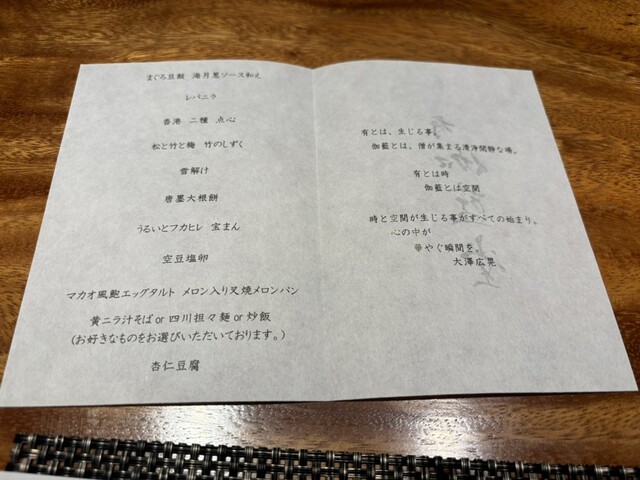 まぐろ豆鼓 海月葱ソース和え
レバニラ
香港 二種 点心
松と竹と梅 竹のしずく
雪解け
唐墨大根餅
うるいとフカヒレ 宝まん
空豆塩卵
マカオ風鮑エッグタルト メロン入り叉焼メロンパン
黄ニラ汁そば or 四川担々麺 or 炒飯
(お好きなものをお選びいただいております。)
杏仁豆腐
有とは、生じる事。
伽藍とは、僧が集まる清浄閑静な場。
有とは時
伽藍とは空間
時と空間が生じる事がすべての始まり。
心の中が
華やぐ瞬間を。
大澤広晃